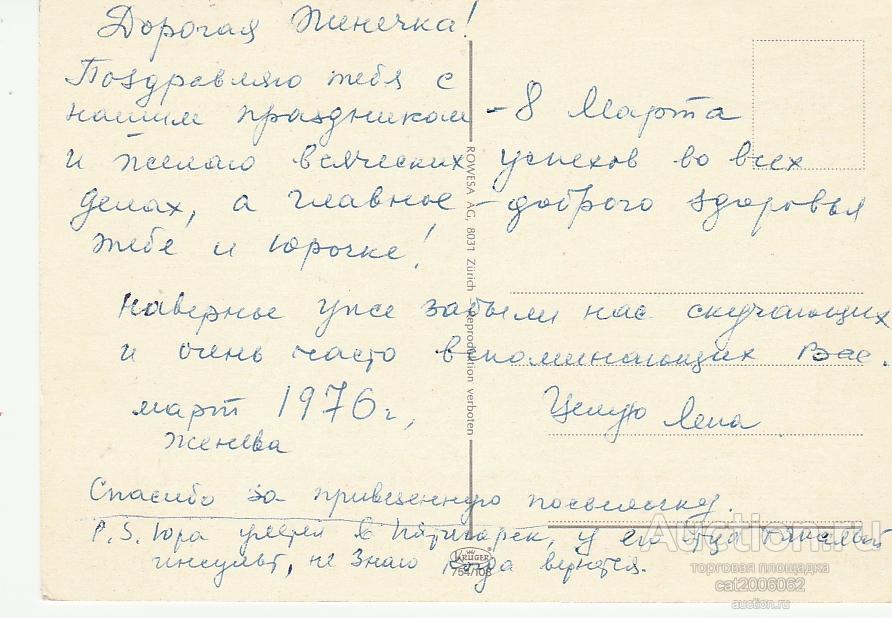 Дорогая Женечка!
Поздравляю тебя с
нашим праздником - 8 Марта
и желаю всяческих успехов во всех
делах, а главное - доброго здоровья
тебе и Юрочке!
Наверное уже забыли нас скучающих
и очень часто вспоминающих Вас.
март 1976 г,
Женева
Целую Лена
Спасибо за привезенную посылочку.
P.S. Юра улетел в Пятигорск, у его отца тяжелый
инсульт, не знаю когда вернется.
ROWESA AG, 8031 Zürich Reproduktion verboten
KRÜGER
754/108
Auction.ru
торговая площадка
cat2006062
auction.ru